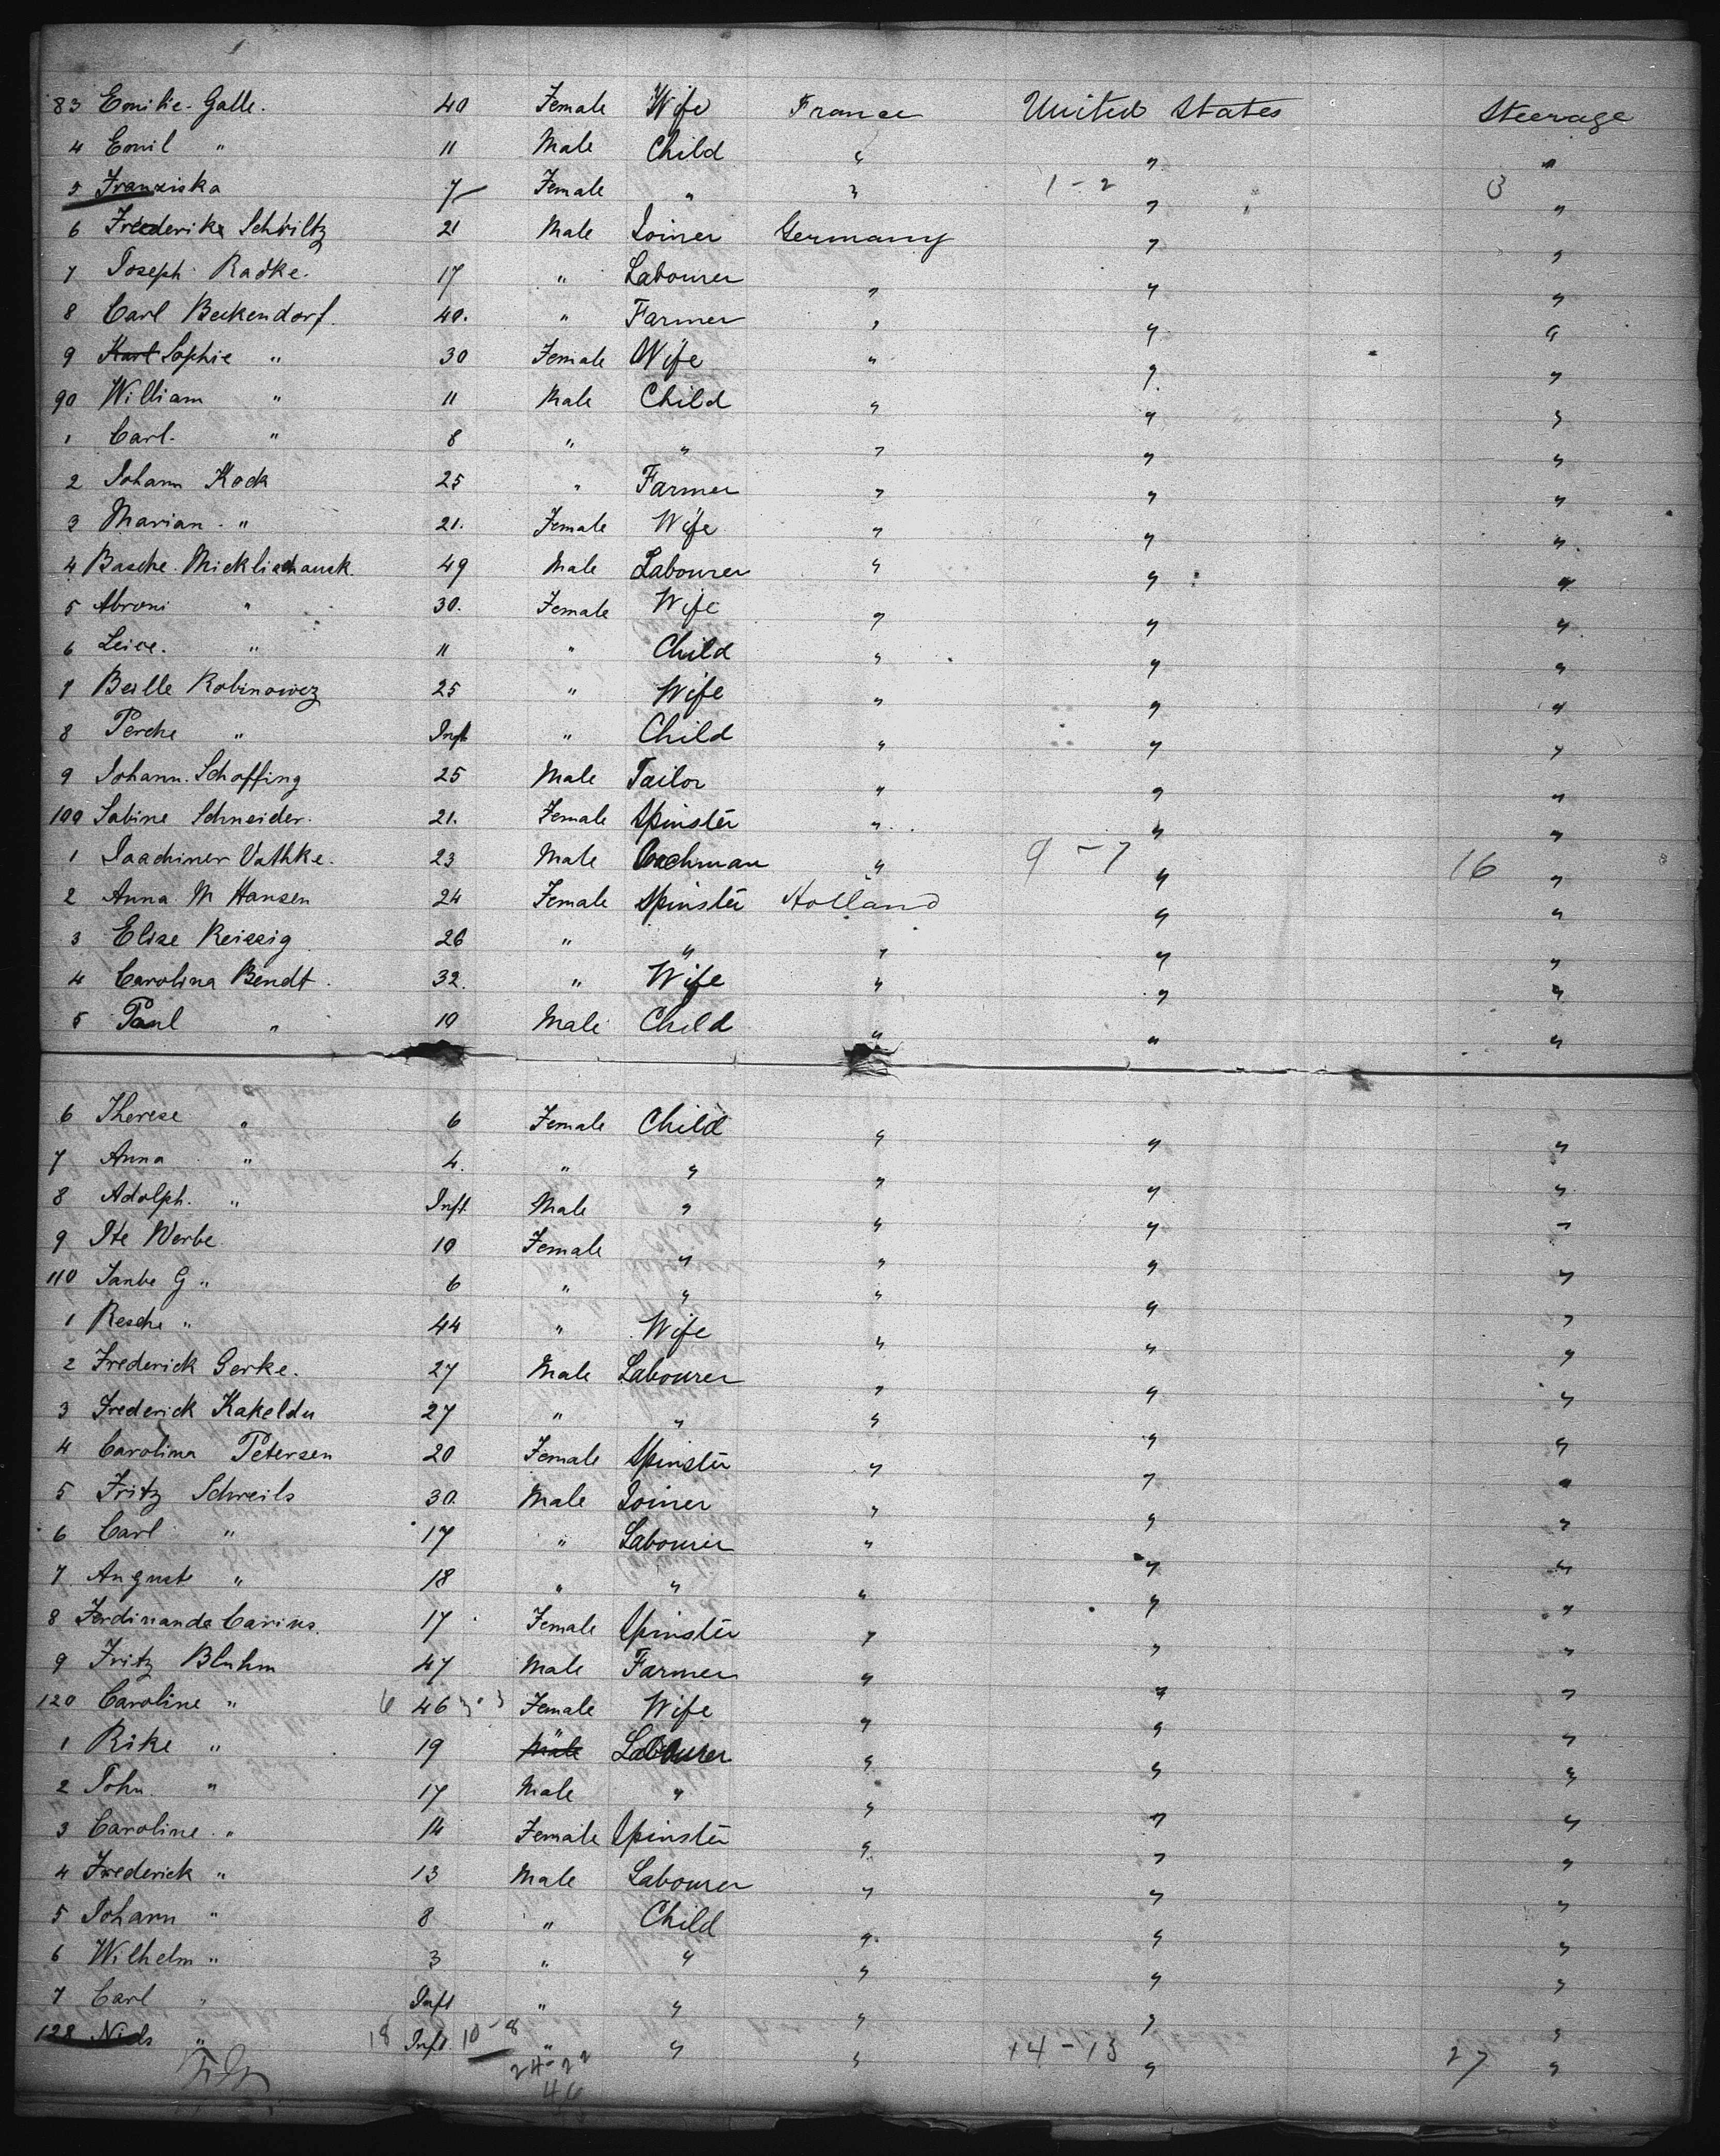 83 Emilie Galle. 40 Female Wife France United States Steerage
4 Emil " 11 Male Child " " "
5 Franziska 7 Female " " 1-2 " 3 "
6 Frederike Schviltz 21 Male Joiner Germany " "
7 Joseph Radke. 17 " Labourer " " "
8 Carl Beckendorf. 40. " Farmer " " "
9 Karl Sophie " 30 Female Wife " " "
90 William " 11 Male Child " " "
1 Carl. " 8 " " " " "
2 Johann Kock 25 " Farmer " " "
3 Marian. " 21. Female Wife " " "
4 Basche. Micklischansk. 49 Male Labourer " " "
5 Abroni " 30. Female Wife " " "
6 Leice. " 11 " Child " " "
7 Beille Robinowiez 25 " Wife " " "
8 Perche " Inft " Child " " "
9 Johann. Schoffing 25 Male Tailor " " "
100 Sabine Schneider. 21. Female Spinster " " "
1 Joachiner Vathke. 23 Male Coachman " 9-7 " 16 "
2 Anna M Hansen 24 Female Spinster Holland " "
3 Elise Reissig 26 " " " " "
4 Carolina Bendt. 32. " Wife " " "
5 Paul " 10 Male Child " " "
6 Therese " 6 Female Child " " "
7 Anna " 4. " " " " "
8 Adolph. " Inft Male " " " "
9 Ite Werbe 10 Female " " " "
110 Sanbe G " 6 " " " " "
1 Resche " 44 " Wife " " "
2 Frederick Gerke. 27 Male Labourer " " "
3 Frederick Kakeldu 27 " " " " "
4 Carolina Petersen 20 Female Spinster " " "
5 Fritz Schreils 30. Male Joiner " " "
6 Carl " 17 " Labourer " " "
7 August " 18 " " " " "
8 Ferdinande Carius. 17 Female Spinster " " "
9 Fritz Bluhm 47 Male Farmer " " "
120 Caroline " 6 46 Female Wife " " "
1 Rike " 19 " Male Labourer " " "
2 John " 17 Male " " " "
3 Caroline " 14 Female Spinster " " "
4 Frederick " 13 Male Labourer " " "
5 Johann " 8 " Child " " "
6 Wilhelm " 3 " " " " "
7 Carl " Inft " " " " "
128 Niels " 18 Inft. 10-8 " " " 14-13 " 27 "
24-22
46